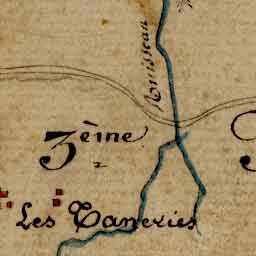 Ruisseau
3ème
Les Taneries